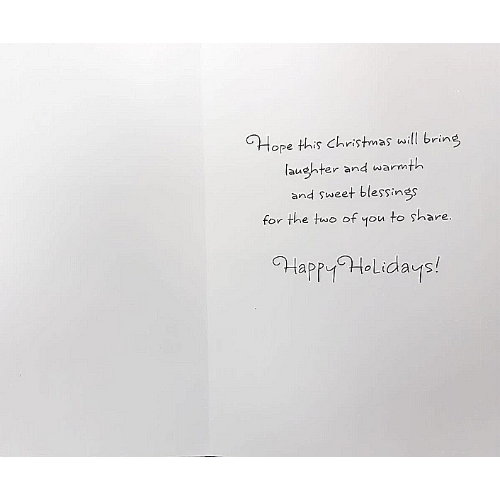 Hope this Christmas will bring
laughter and warmth
and sweet blessings
for the two of you to share.
Happy Holidays!